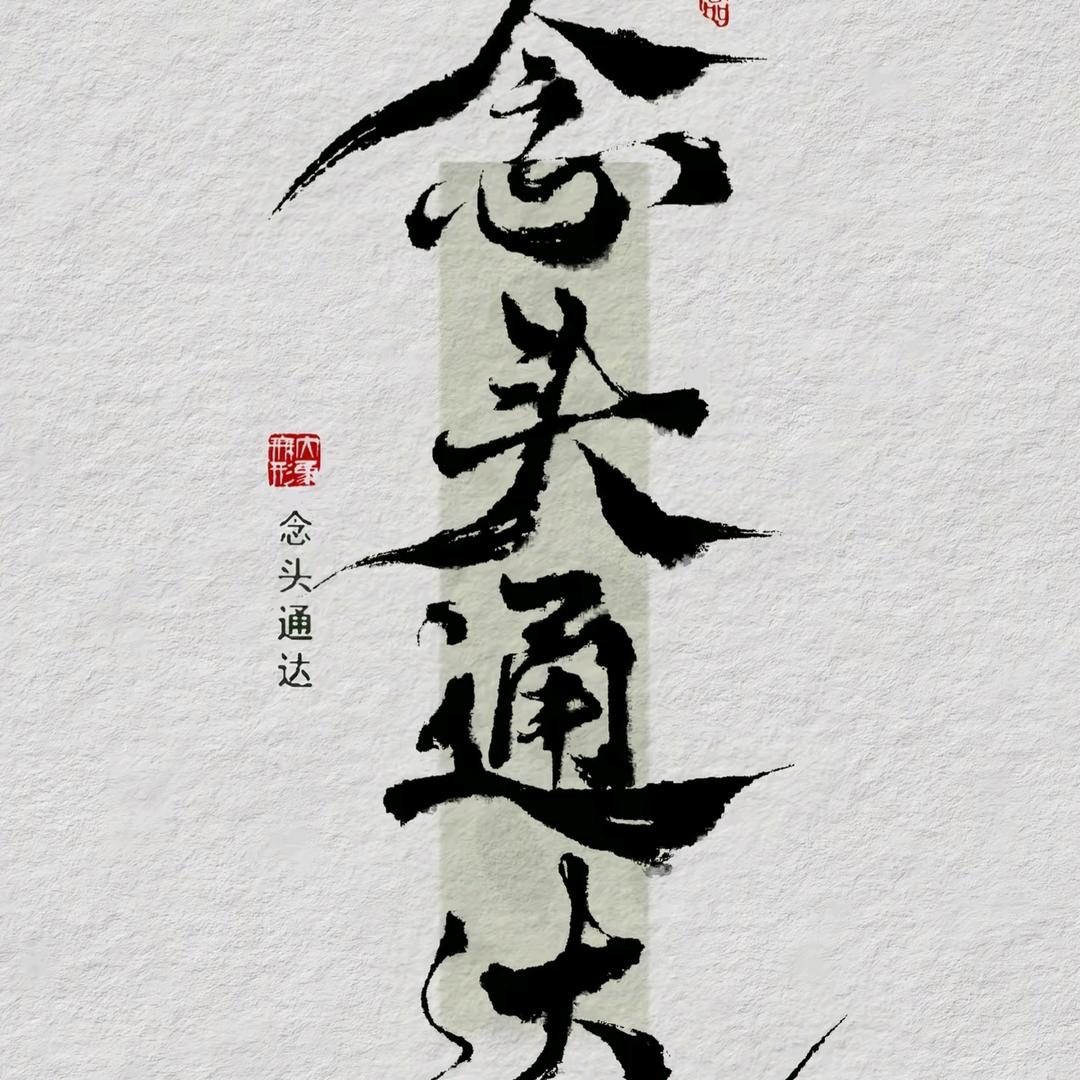 念头通达
大象無形
念头通达